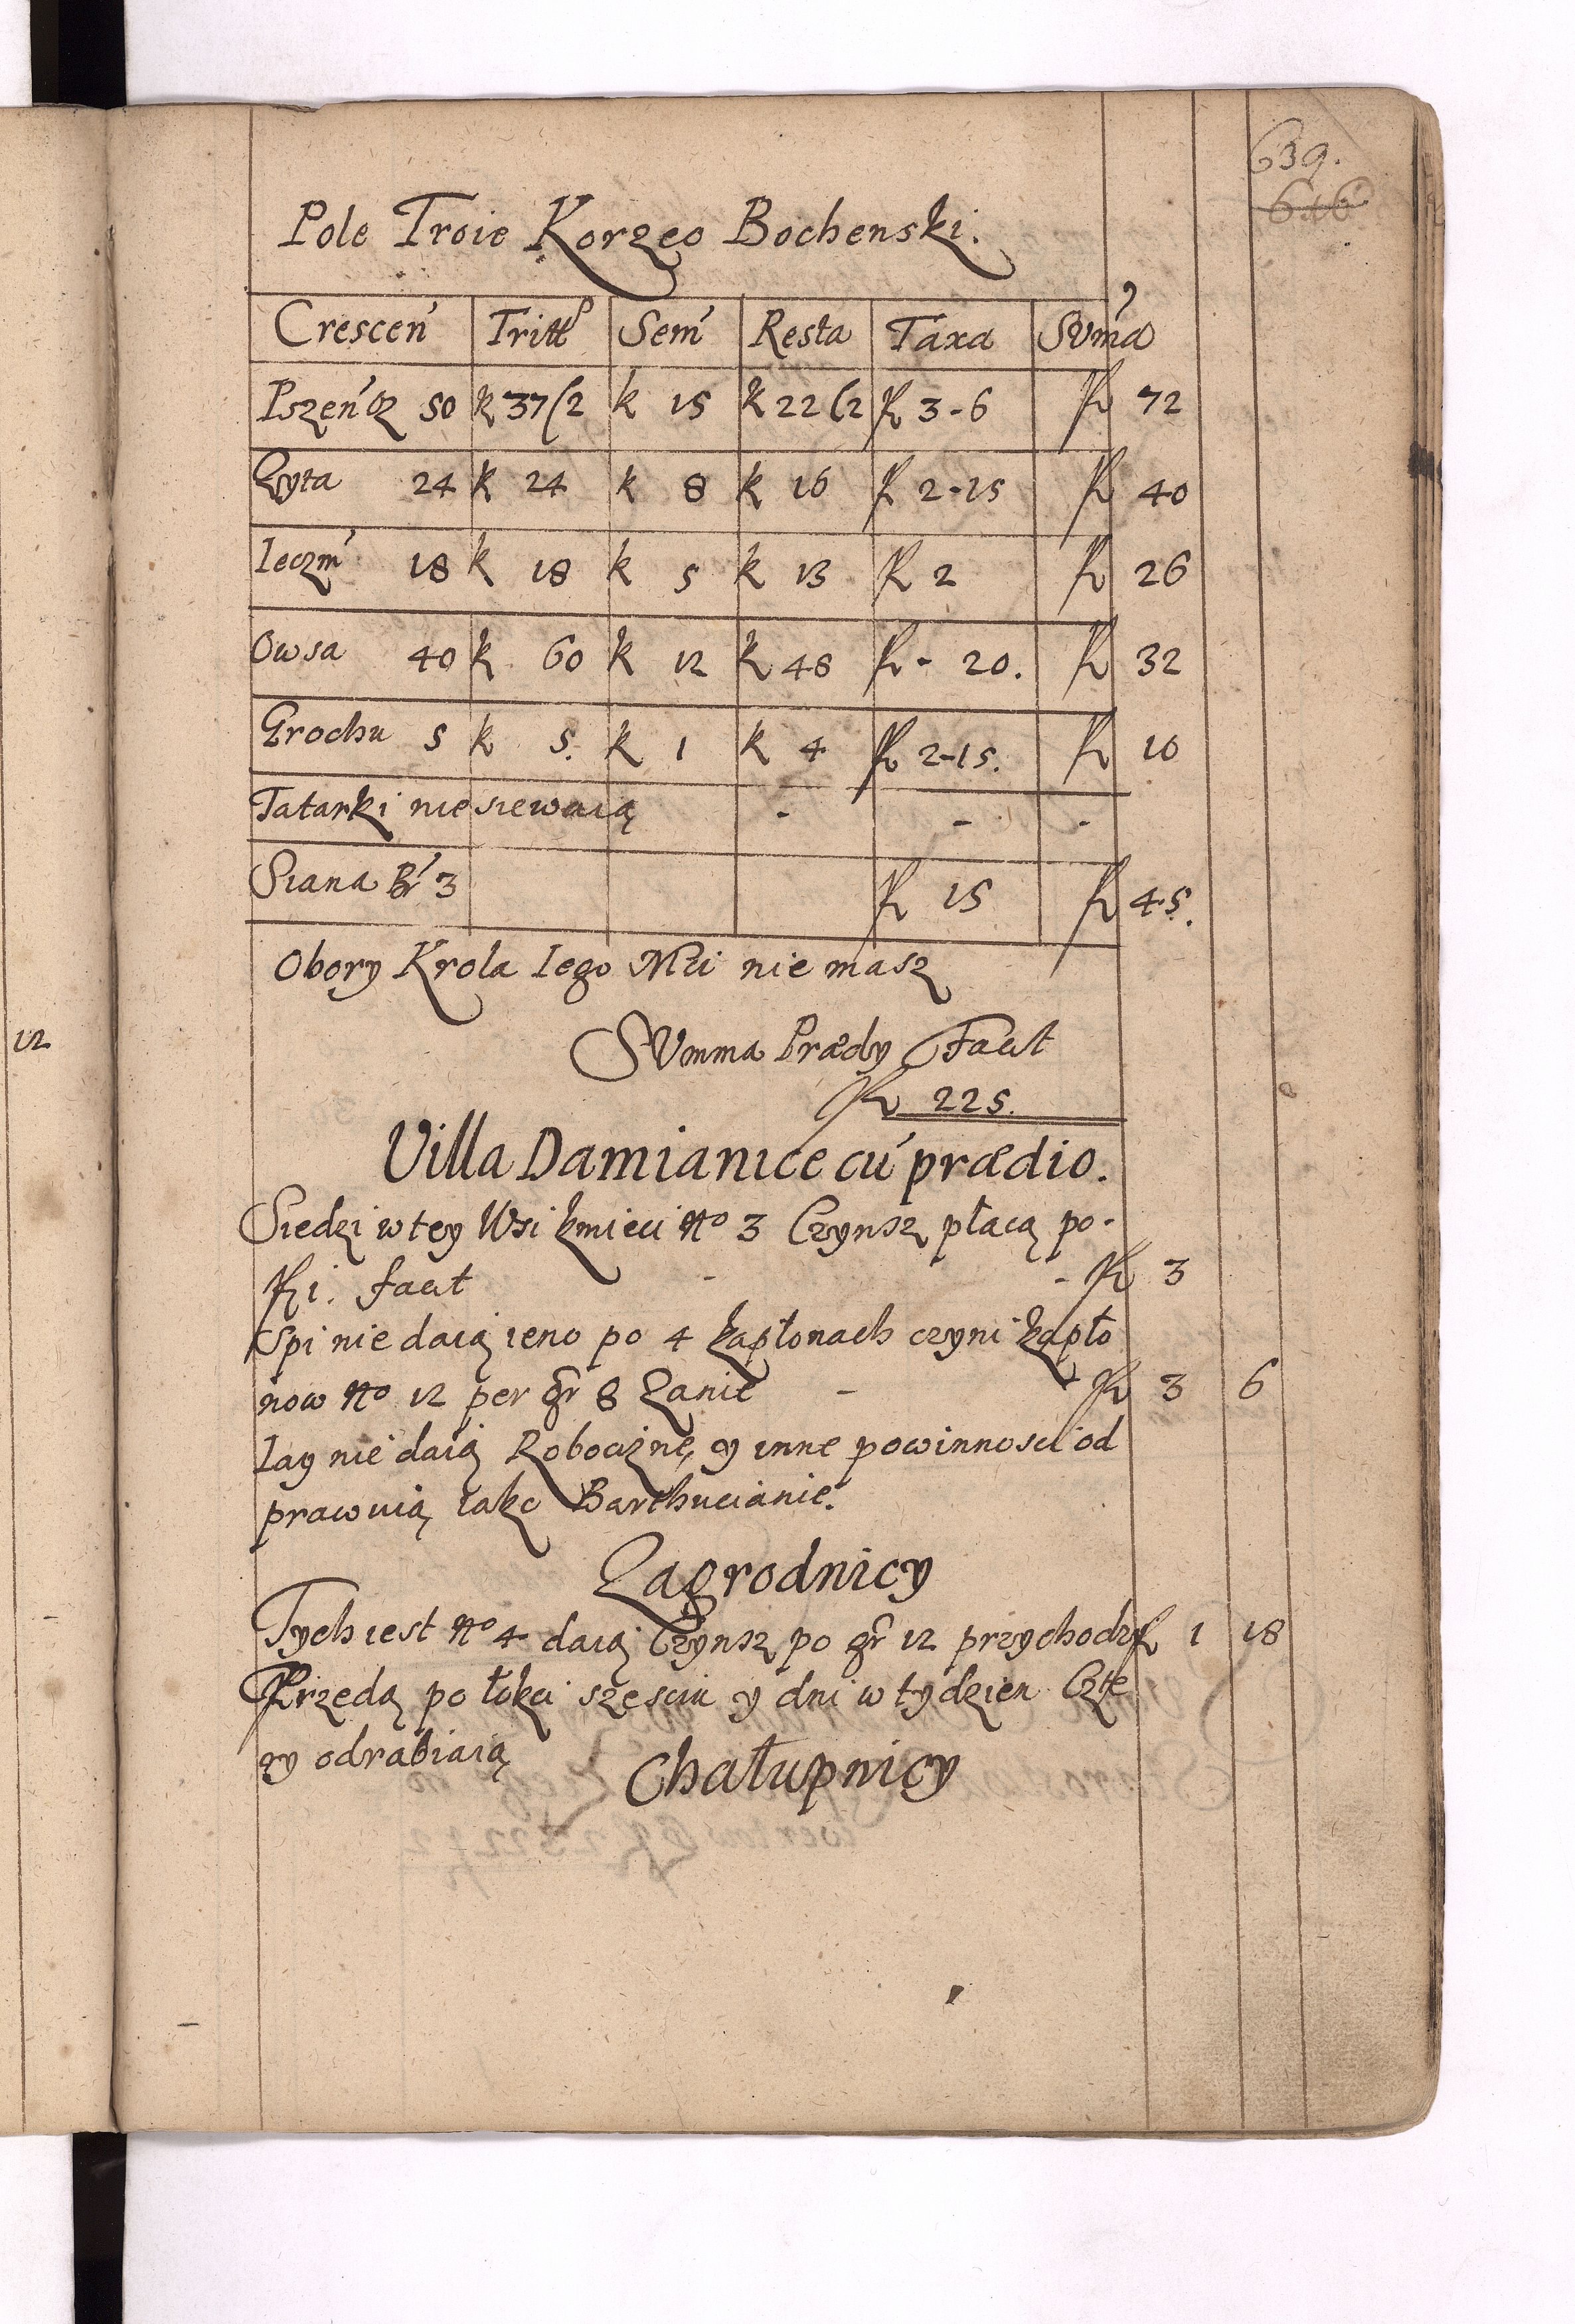 639.
616
Pole Troie Korzec Bochenski.
Crescen Tritt Sem Resta Taxa Suma
Pszen cz 50 k 37(2 k 15 k 22(2 fl 3-6 fl 72
Zyta 24 k 24 k 8 k 16 fl 2-15 fl 40
Ieczm 18 k 18 k 5 k 13 fl 2 fl 26
Owsa 40 k 60 k 12 k 48 fl - 20. fl 32
Grochu 5 k 5. k 1 k 4 fl 2-15. fl 10
Tatarki nie siewaią - - -
Siana Br 3 fl 15 fl 45.
Obory Krola Iego Mci nie masz
12
Summa Prædy Facit
fl 225.
Villa Damianice cu prædio.
Siedzi w tey Wsi kmieci No 3 Czynsz płacą po-
fl 1. facit - - fl 3
Spi nie daią ieno po 4 kapłonach czyni kapło
now No 12 per gr 8 Zanie - fl 3 6
Iay nie daią Robociznę, y inne powinnosci od
prawuią iako Barthucianie.
Zagrodnicy
Tych iest No 4 daią Czynsz po gr 12 przychodzi fl 1 18
Przedą po łokci szesciu y dni w tydzien Czte
ry odrabiaią
Chałupnicy